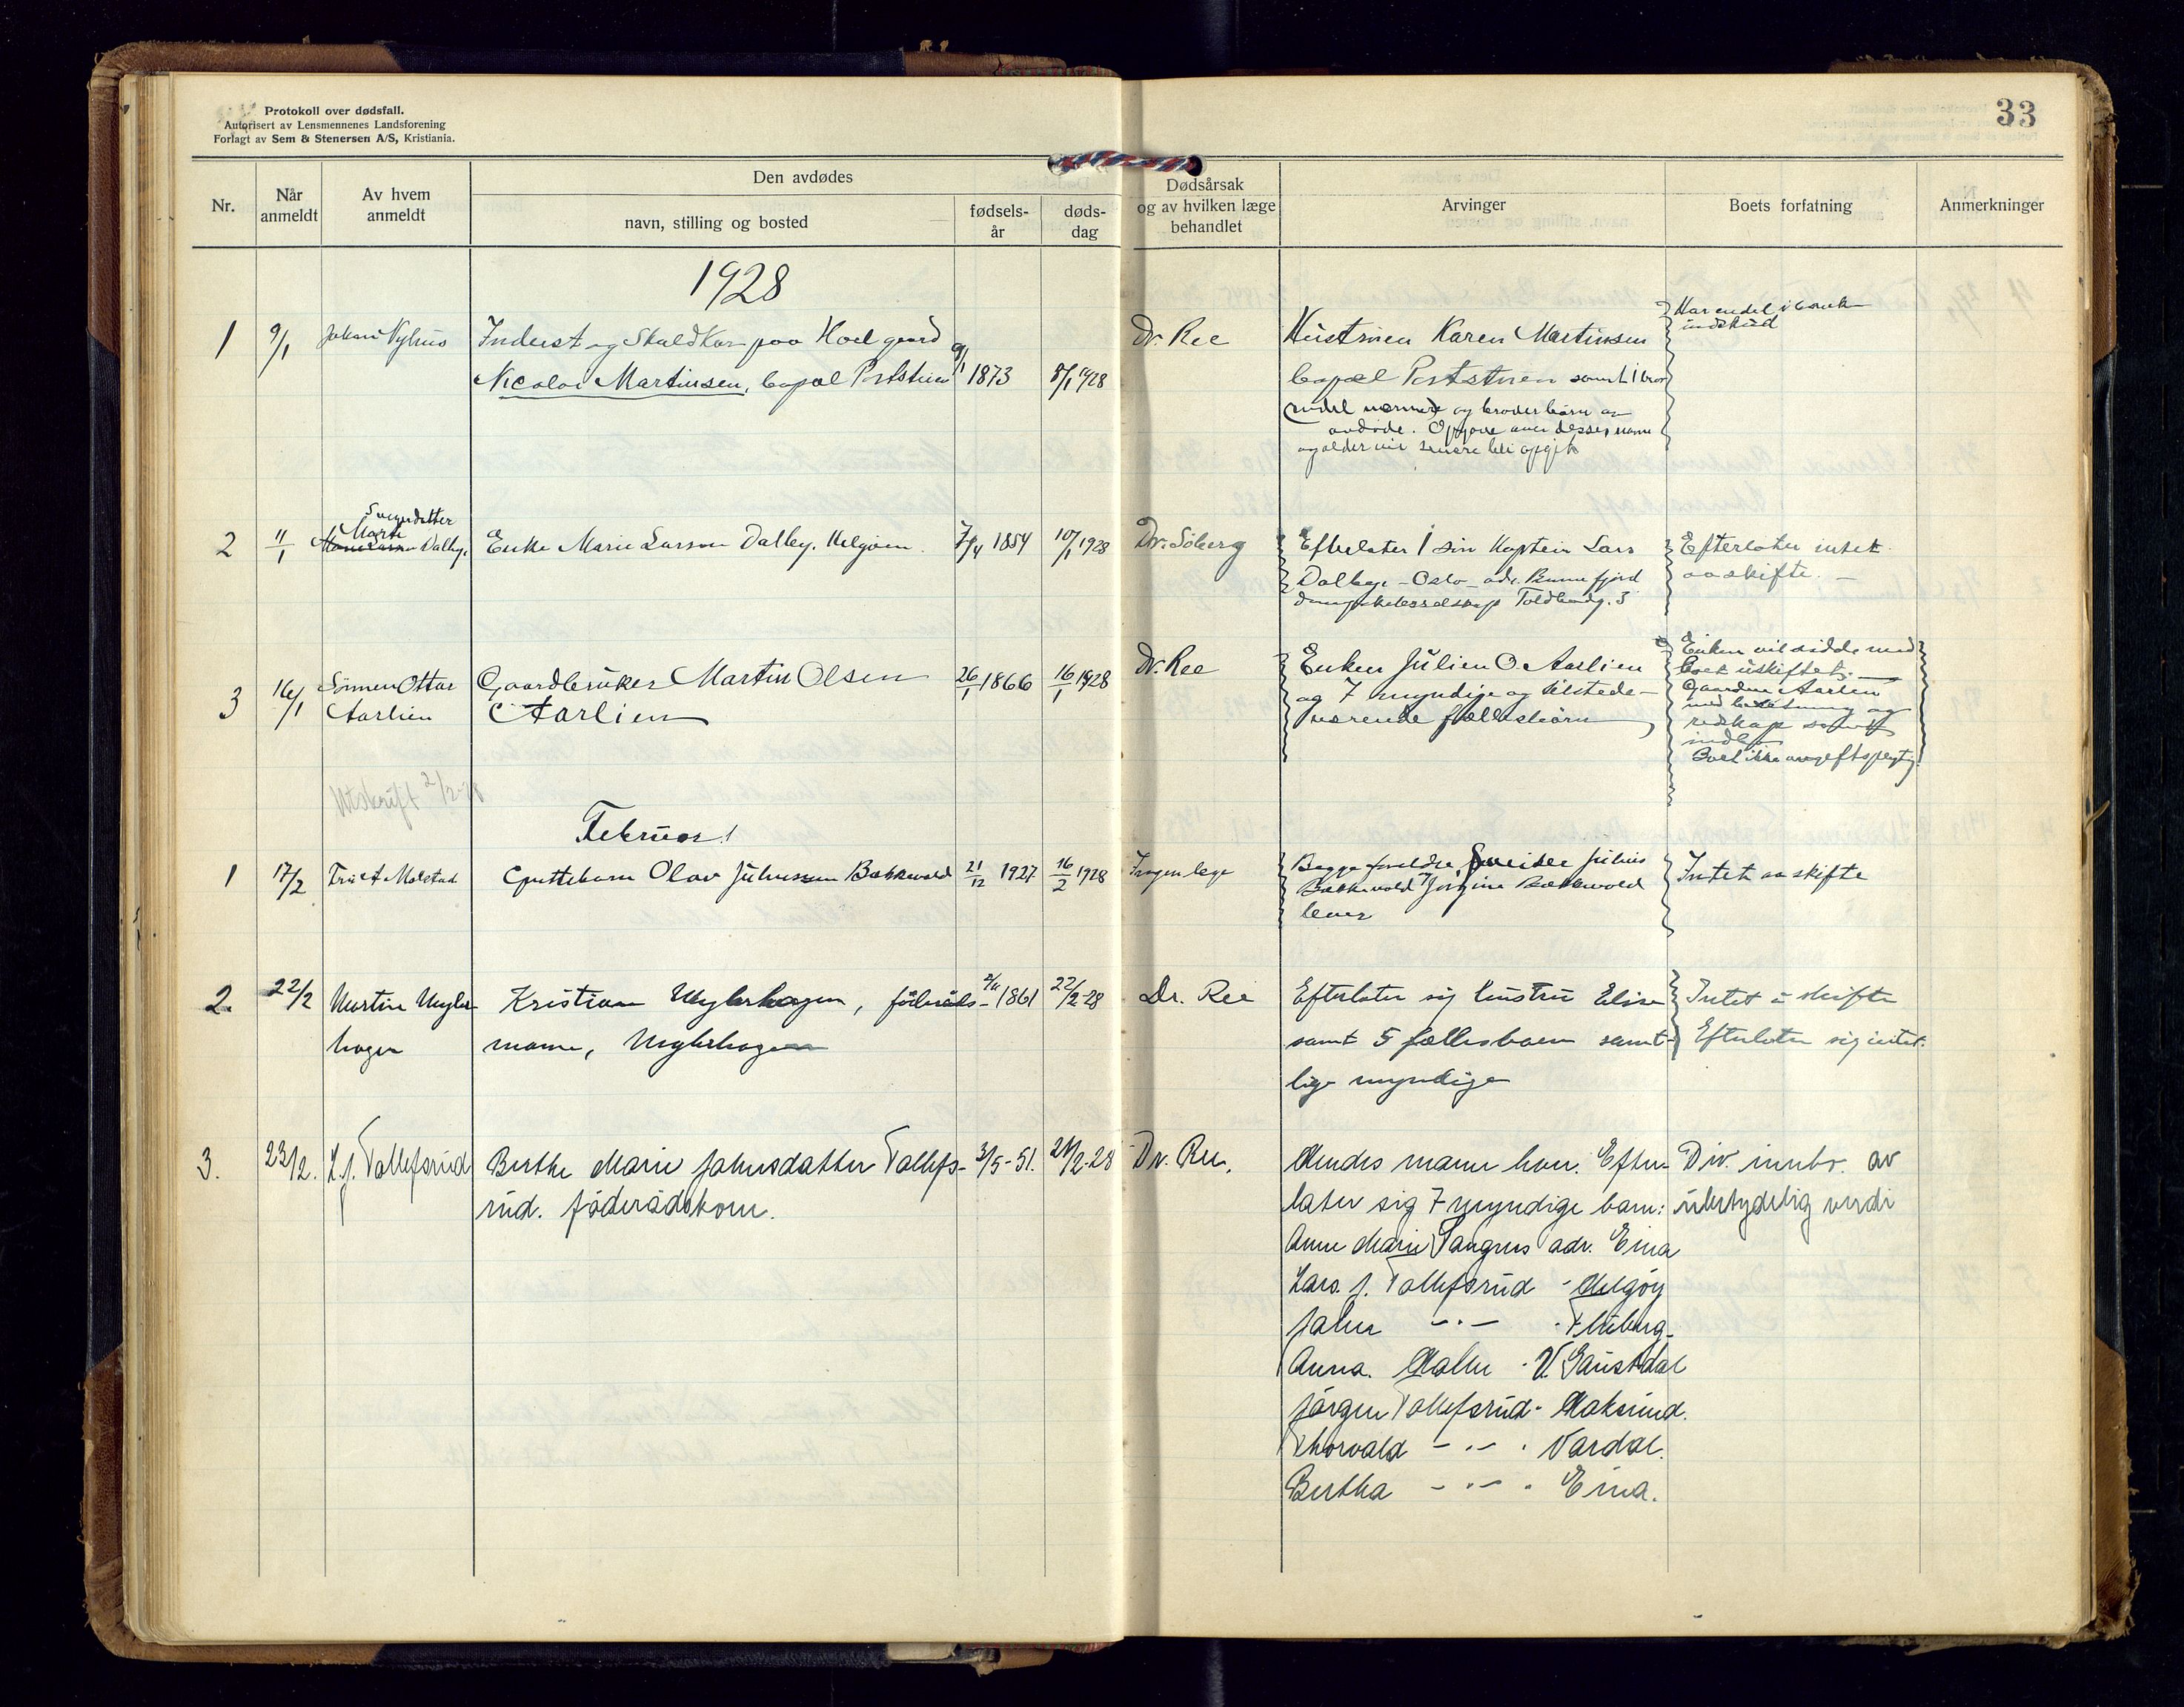 Protokoll over dødsfall.
Autorisert av Lensmennenes Landsforening
Forlagt av Sem & Stenersen A/S, Kristiania.
33
Nr.
Når anmeldt
Av hvem anmeldt
Den avdødes
navn, stilling og bosted
fødsels-år
døds-dag
Dødsårsak og av hvilken læge behandlet
Arvinger
Boets forfatning
Anmerkninger
1928
1
9/1
Johan Nyhus
Inderst og Skuldkar paa Hoel gaard
Nicolai Martinsen,
9/1 1873
8/1 1928
Dr. Ree
Hustruen Karen Martinsen
samt 1 bror
og broderbørn av
avdøde. Opgave over disses navn
og alder vil senere bli opgit
Har endel i bank
indskud
2
11/1
Svigerdatter
Marthe
Dalby.
Enke Marie Larsen Dalby. Helgøen
7/4 1854
10/1 1928
Dr. Soberg
Efterlater 1 søn Kaptein Lars
Dalbye - Oslo - adr. Bunnefjord
dampskibsselskap Toldbodg. 3
Efterlater intet
aa skifte. -
3
16/1
Sønnen Ottar
Aarlien
Gaardbruker Martin Olsen
Aarlien
26/1 1866
16/1 1928
Dr. Ree
Enken Julien O. Aarlien
og 7 myndige og tilstede-
værende fællesbørn
Enken vil sidde med
boet uskiftet.
Gaarden Aarlien
med besætning og
redskap samt
indbo
Boet ikke avgiftspligtig.
Utskrift 2/2-28
Februar!
1
17/2
Fru A Molstad
Guttebarn Olav Juliussen Bakkevold
21/12 1927
16/2 1928
Ingen læge
Begge foreldre, Sveiser Julius
Bakkevold og Jorgine Bakkevold
lever
Intet aa skifte
2.
22/2
Martin Ugler-
hagen
Kristian Uglerhagen, föderåds-
mann, Uglerhagen
1861
22/2-28
Dr. Ree
Efterlater sig hustru Elise
samt 5 fællesbarn samt-
lige myndige
Intet å skifte
Efterlater sig intet.
3.
23/2.
L. J. Tollefsrud
Berthe Marie Johnsdatter Tollefs-
rud. föderådskone.
3/5-51.
21/2-28
Dr. Ree.
Hendes mann lever. Efter-
later sig 7 myndige barn:
Anne Marie Sangnes adr. Eina
Lars. J. Tollefsrud - Helgöy
Johan -"- - Fluberg
Anna. Holm - V. Gausdal
Jörgen Tollefsrud - Hoksund.
Thorvald -"- - Vardal.
Bertha -"- - Eina.
Div. innbo. av
ubetydelig verdi